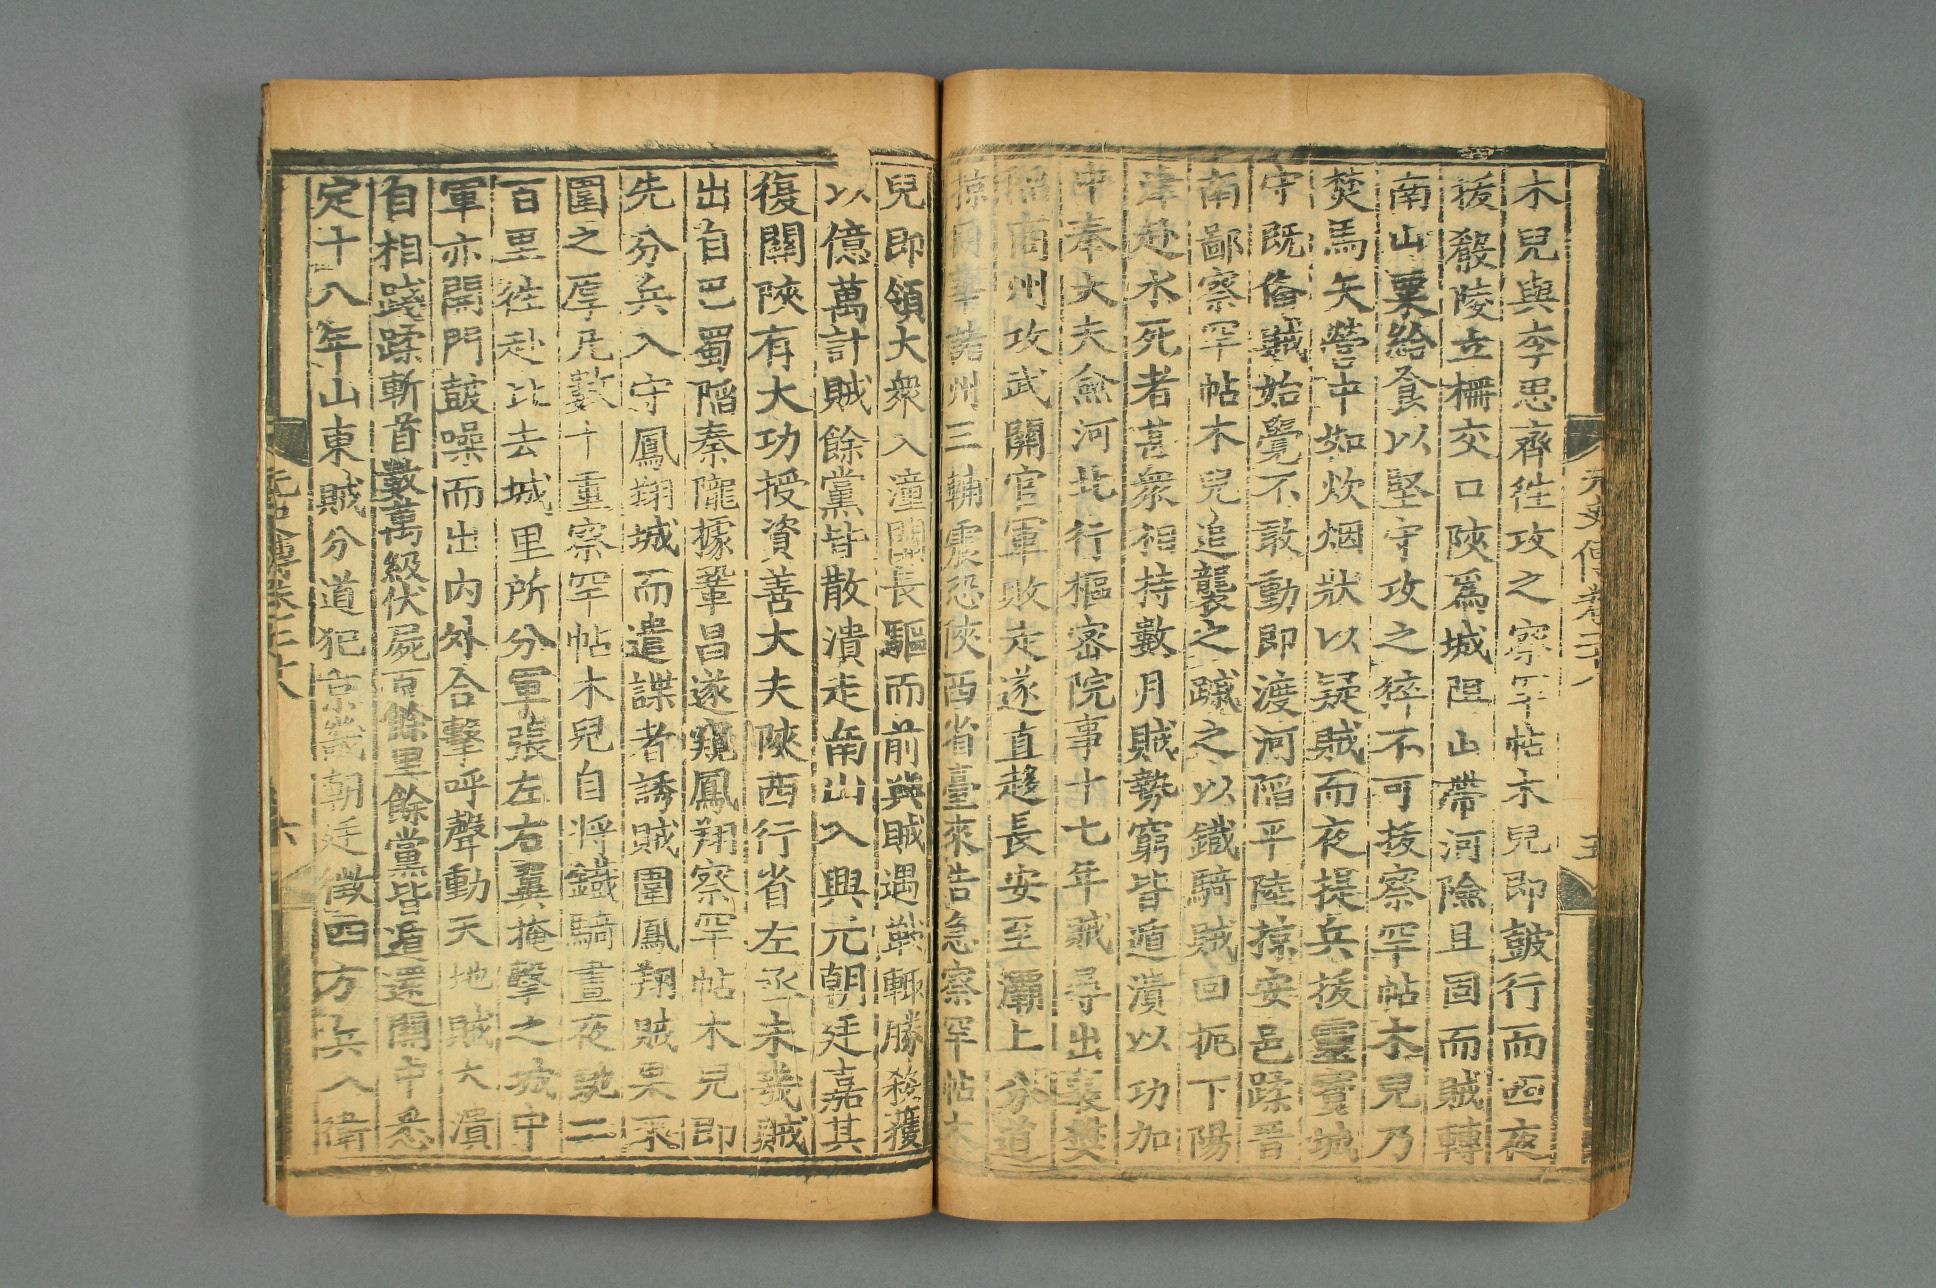 木兒與李思齊往攻之察罕帖木兒即鼓行而西夜
拔殽陵立柵交口陝爲城阻山帶河險且固而賊轉
南山粟給食以堅守攻之猝不可拔察罕帖木兒乃
焚馬矢營中如炊烟狀以疑賊而夜提兵拔靈寶城
守既俻賊始覺不敢動即渡河陷平陸掠安邑蹂晋
南鄙察罕帖木兒追襲之蹴之以鐵騎賊回扼下陽
津赴水死者甚衆相持數月賊勢窮皆遁潰以功加
中奉大夫僉河北行樞密院事十七年賊尋出襄樊
陷商州攻武關官軍敗走遂直趍長安至灞上分道
掠同華諸州三輔震恐陝西省臺來告急察罕帖木
兒即領大衆入潼關長驅而前與賊遇戰輒勝殺獲
以億萬計賊餘黨皆散潰走南山入興元朝廷嘉其
復關陝有大功授資善大夫陝西行省左丞未幾賊
出自巴蜀陷秦隴據鞏昌遂窺鳳翔察罕帖木兒即
先分兵入守鳳翔城而遣諜者誘賊圍鳳翔賊果來
圍之厚凡數十重察罕帖木兒自將鐵騎晝夜馳二
百里往赴比去城里所分軍張左右翼掩擊之城中
軍亦開門鼓噪而出内外合擊呼聲動天地賊大潰
自相踐蹂斬首數萬級伏屍百餘里餘黨皆遁還關中悉
定十八年山東賊分道犯京畿朝廷徵四方兵入衛
元史傳卷二十八
五
六